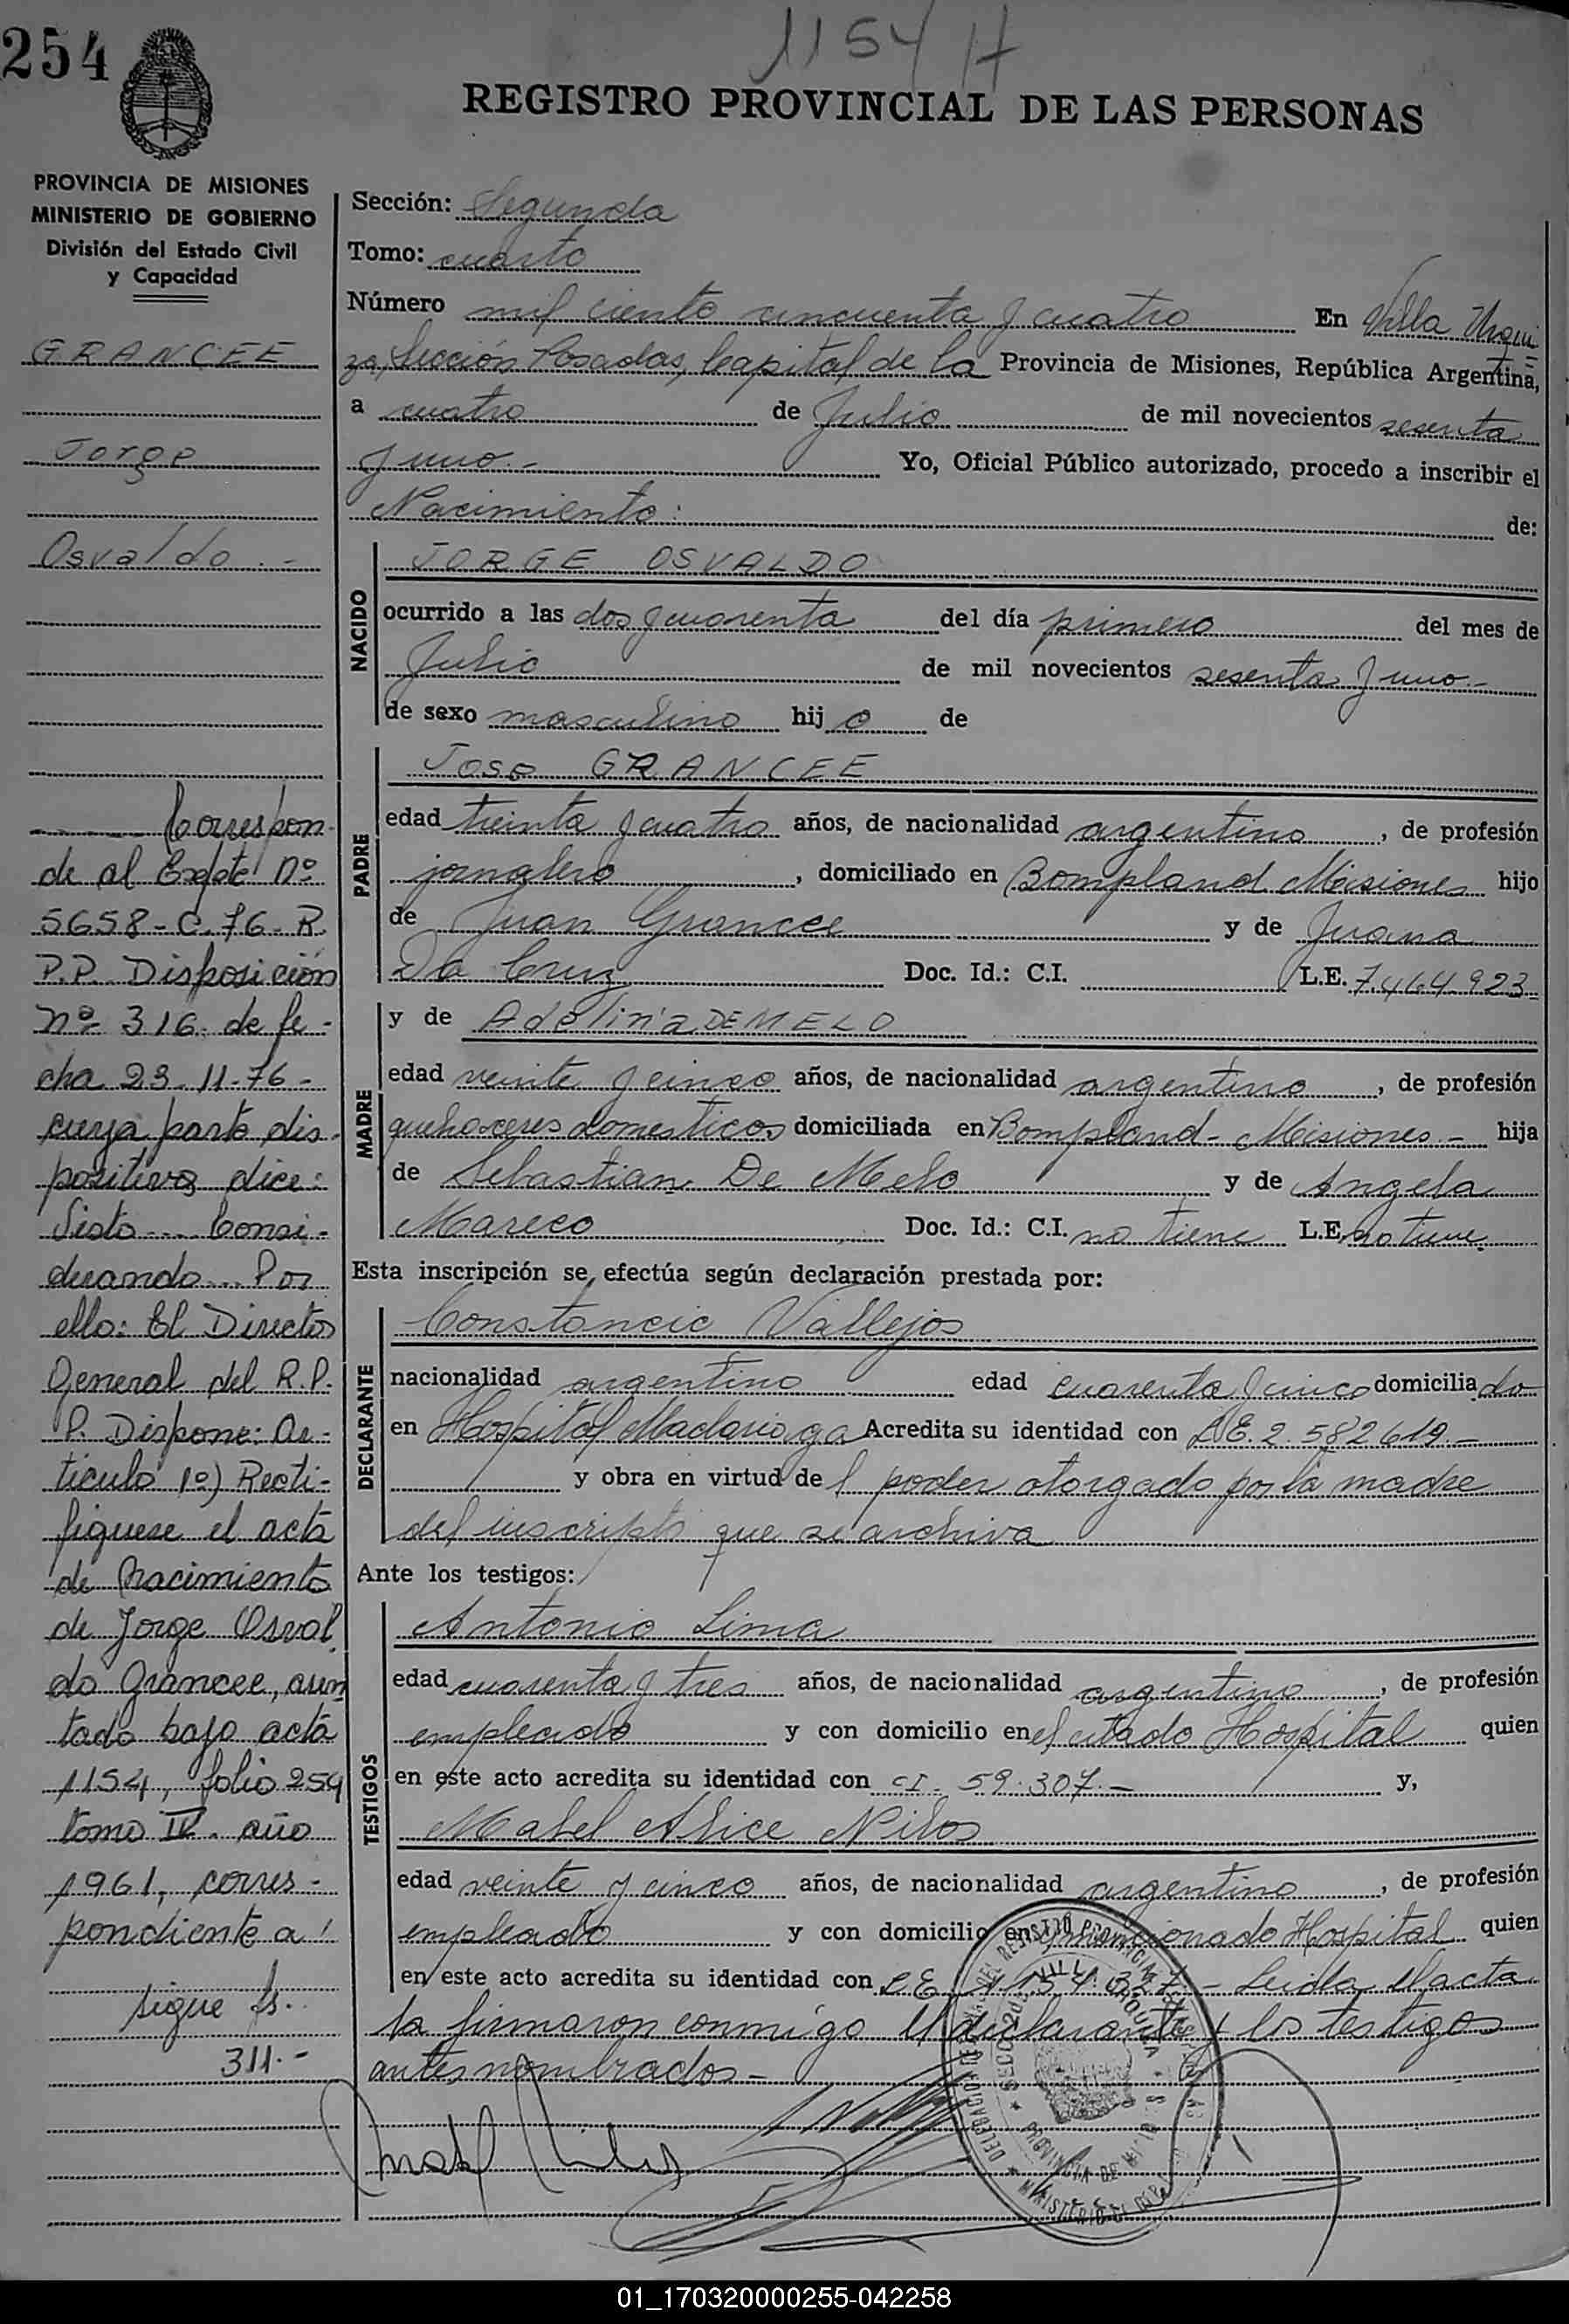 254
1154 H
REGISTRO PROVINCIAL DE LAS PERSONAS
PROVINCIA DE MISIONES
MINISTERIO DE GOBIERNO
División del Estado Civil
y Capacidad
GRANCEE
Jorge
Osvaldo.-
Correspon-
de al Expte Nº
5658-C-76-R.
P.P. Disposición
nº 316 de fe-
cha 23-11-76-
cuya parte dis-
positiva dice:
Visto.... Consi-
derando... Por
ello: El Director
General del R.P.
P. Dispone: Ar-
tículo 1º) Recti-
fíquese el acta
de Nacimiento
de Jorge Osval
do Grancee, asen
tado bajo acta
1154, folio 254
tomo IV. año
1961, corres-
pondiente a!
sigue fs..
311.-
Sección: Segunda
Tomo: cuarto
Número mil ciento cincuenta y cuatro En Villa Urqui
za, Sección Posadas, Capital de la Provincia de Misiones, República Argentina,
a cuatro de Julio de mil novecientos sesenta
y uno.- Yo, Oficial Público autorizado, procedo a inscribir el
Nacimiento: de:
NACIDO
JORGE OSVALDO
ocurrido a las dos y cuarenta del día primero del mes de
Julio de mil novecientos sesenta y uno.-
de sexo masculino hijo de
PADRE
Jose GRANCEE
edad treinta y cuatro años, de nacionalidad argentino, de profesión
jornalero, domiciliado en Bompland Misiones hijo
de Juan Grancee y de Juana
Da Cruz Doc. Id.: C.I. L.E. 7.464.923-
MADRE
y de Adelina DE MELO
edad veinte y cinco años, de nacionalidad argentina, de profesión
quehaceres domesticos domiciliada en Bompland - Misiones.- hija
de Sebastian De Melo y de Angela
Mareco Doc. Id.: C.I. no tiene L.E. no tiene
Esta inscripción se efectúa según declaración prestada por:
DECLARANTE
Constancio Vallejos
nacionalidad argentino edad cuarenta y cinco domiciliado
en Hospital Madariaga Acredita su identidad con L.E. 2.582.619.-
y obra en virtud del poder otorgado por la madre
del inscripto que se archiva
Ante los testigos:
TESTIGOS
Antonio Lima
edad cuarenta y tres años, de nacionalidad argentino, de profesión
empleado y con domicilio en el citado Hospital quien
en este acto acredita su identidad con C.I. 59.307.- y,
Mabel Alice Nilos
edad veinte y cinco años, de nacionalidad argentina, de profesión
empleado y con domicilio en mencionado Hospital quien
en este acto acredita su identidad con L.E. Leida el acta
la firmaron conmigo el declarante y los testigos
antes nombrados.-
01_170320000255-042258